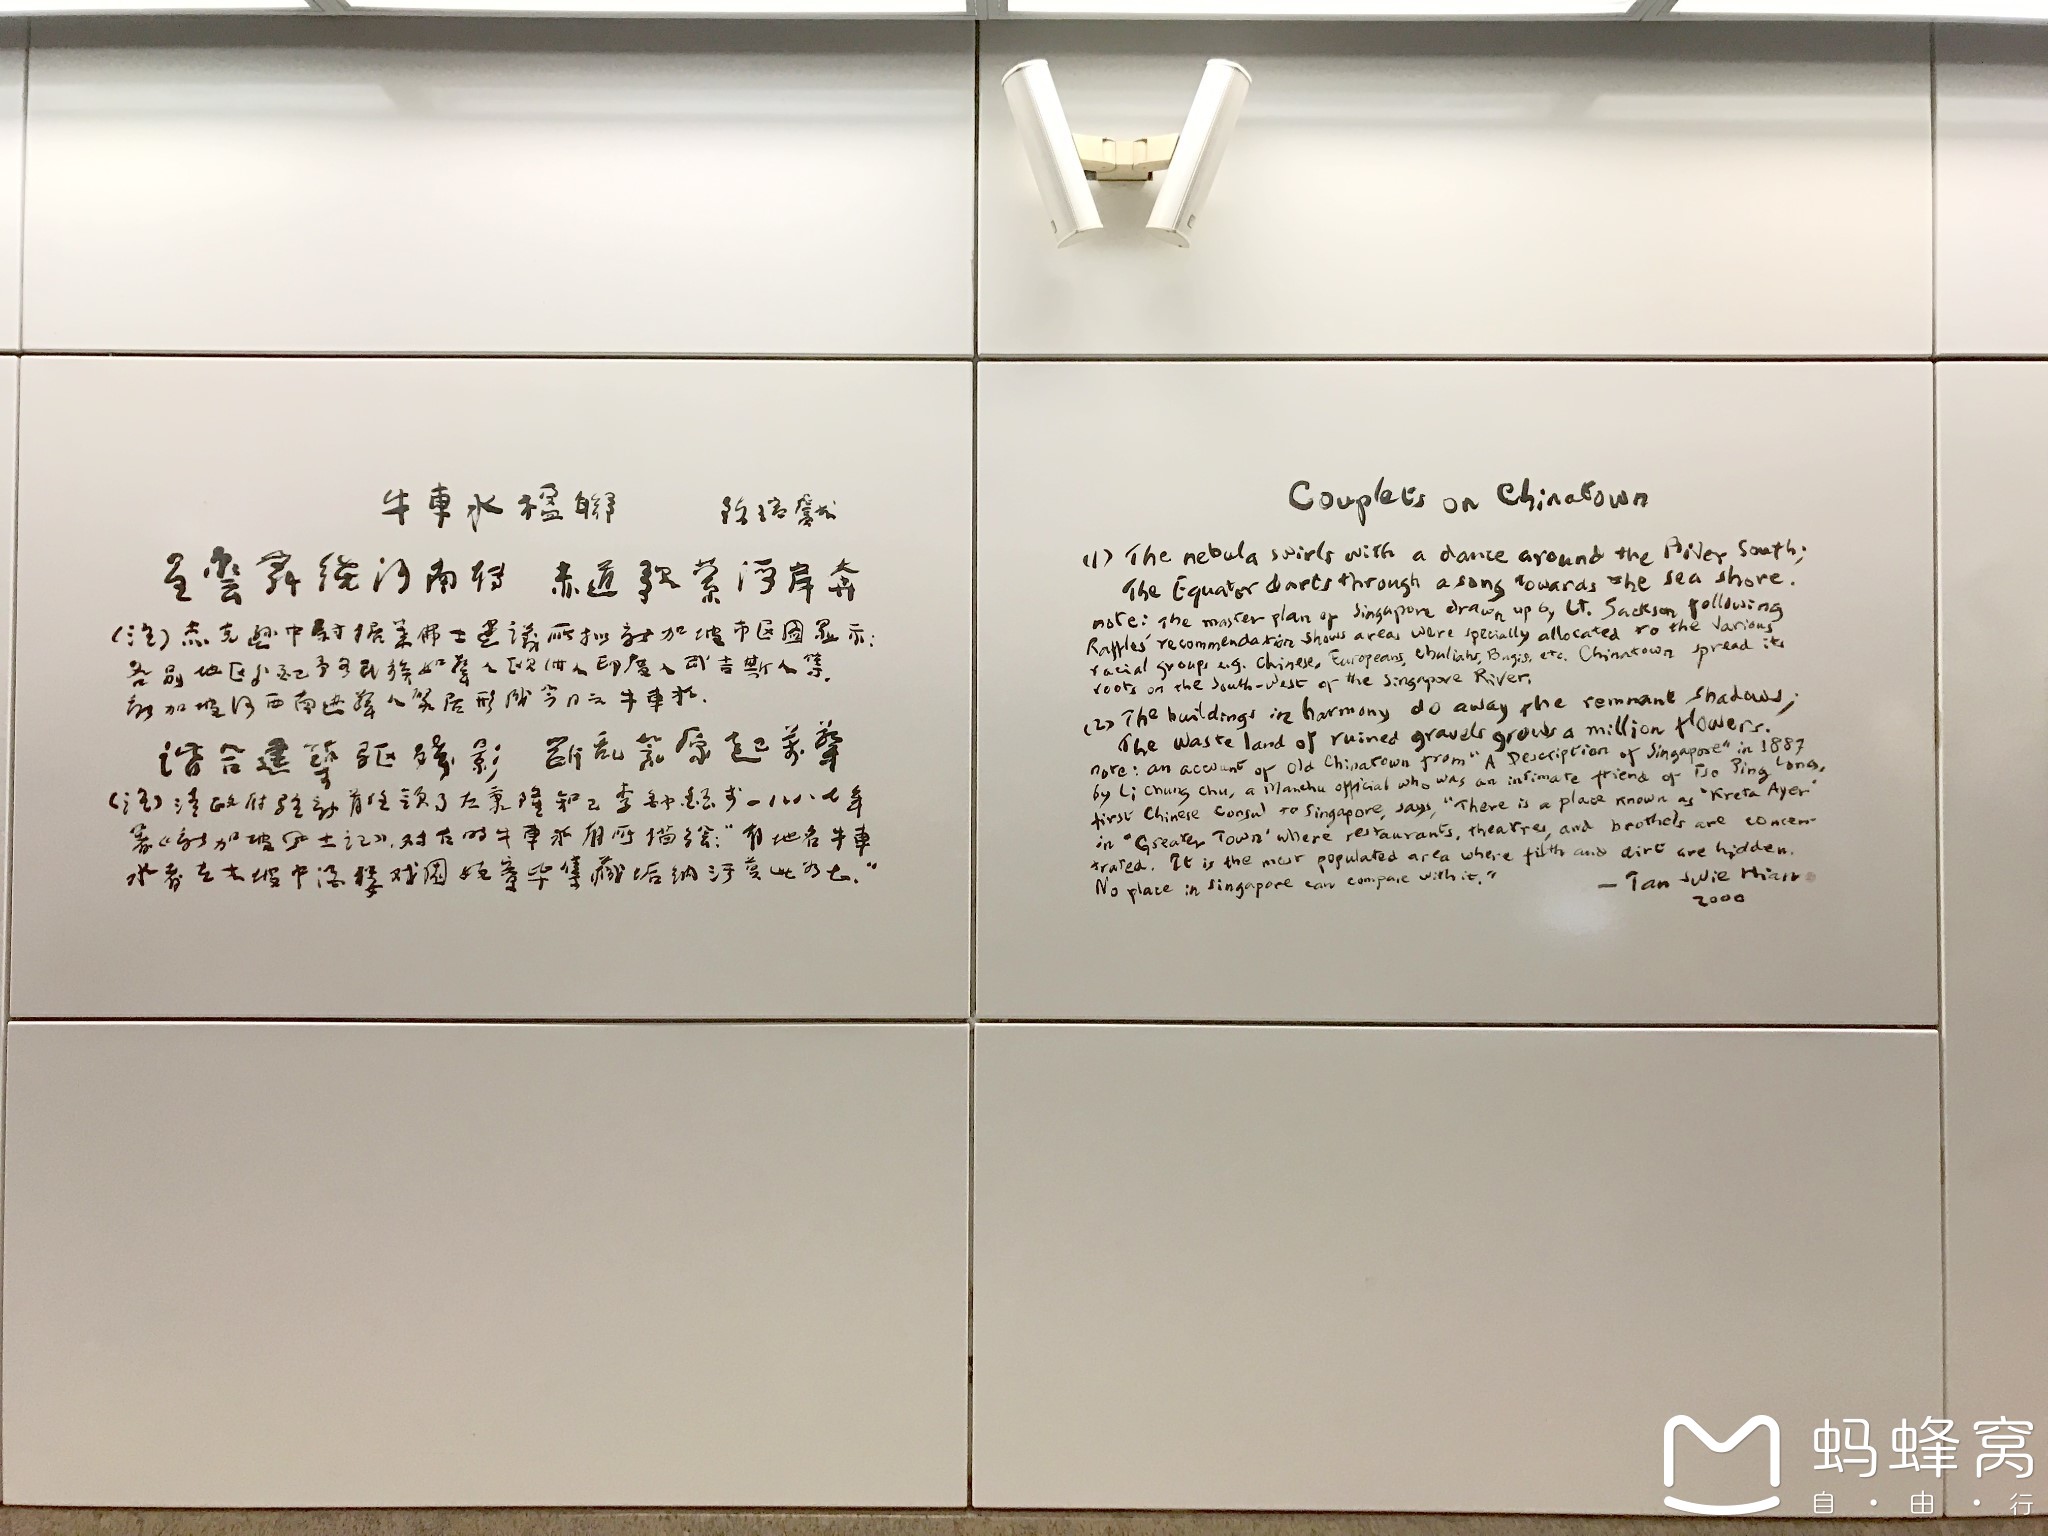 牛車水楹聯 陈瑞獻
星雲舞繞河南轉 赤道歌縈海岸奔
(注)杰克逊中尉据莱佛士建议所拟新加坡市区图显示:
各别地区分配予各民族如华人欧洲人印度人武吉斯人等。
新加坡河西南边华人聚居形成今日之牛車水。
谐合建築驅殘影 斷乱瓦原起萬華
(注)清政府驻新首任领事左秉隆知己李鍾珏于一八八七年
著《新加坡风土记》,对古时牛車水有所描绘:"有地名牛車
水者在大坡中酒楼戏園妓寮毕集藏垢纳污莫此为甚."
Couplets on Chinatown
(1) The nebula swirls with a dance around the River South;
The Equator darts through a song towards the sea shore.
note: The master plan of Singapore drawn up by Lt. Jackson following
Raffles' recommendation shows areas were specially allocated to the various
racial groups e.g. Chinese, Europeans, Chuliahs, Bugis, etc. Chinatown spread its
roots on the South-West of the Singapore River.
(2) The buildings in harmony do away the remnant shadows;
The waste land of ruined gravels grows a million flowers.
note: an account of Old Chinatown from "A Description of Singapore" in 1887
by Li Chung Chu, a Manchu official who was an intimate friend of Tso Ping Long,
first Chinese Consul to Singapore, says, "There is a place known as 'Kreta Ayer'
in 'Greater Town' where restaurants, theatres, and brothels are concen-
trated. It is the most populated area where filth and dirt are hidden.
No place in Singapore can compare with it."
— Tan Swie Hian
2000
蚂蜂窝
自·由·行